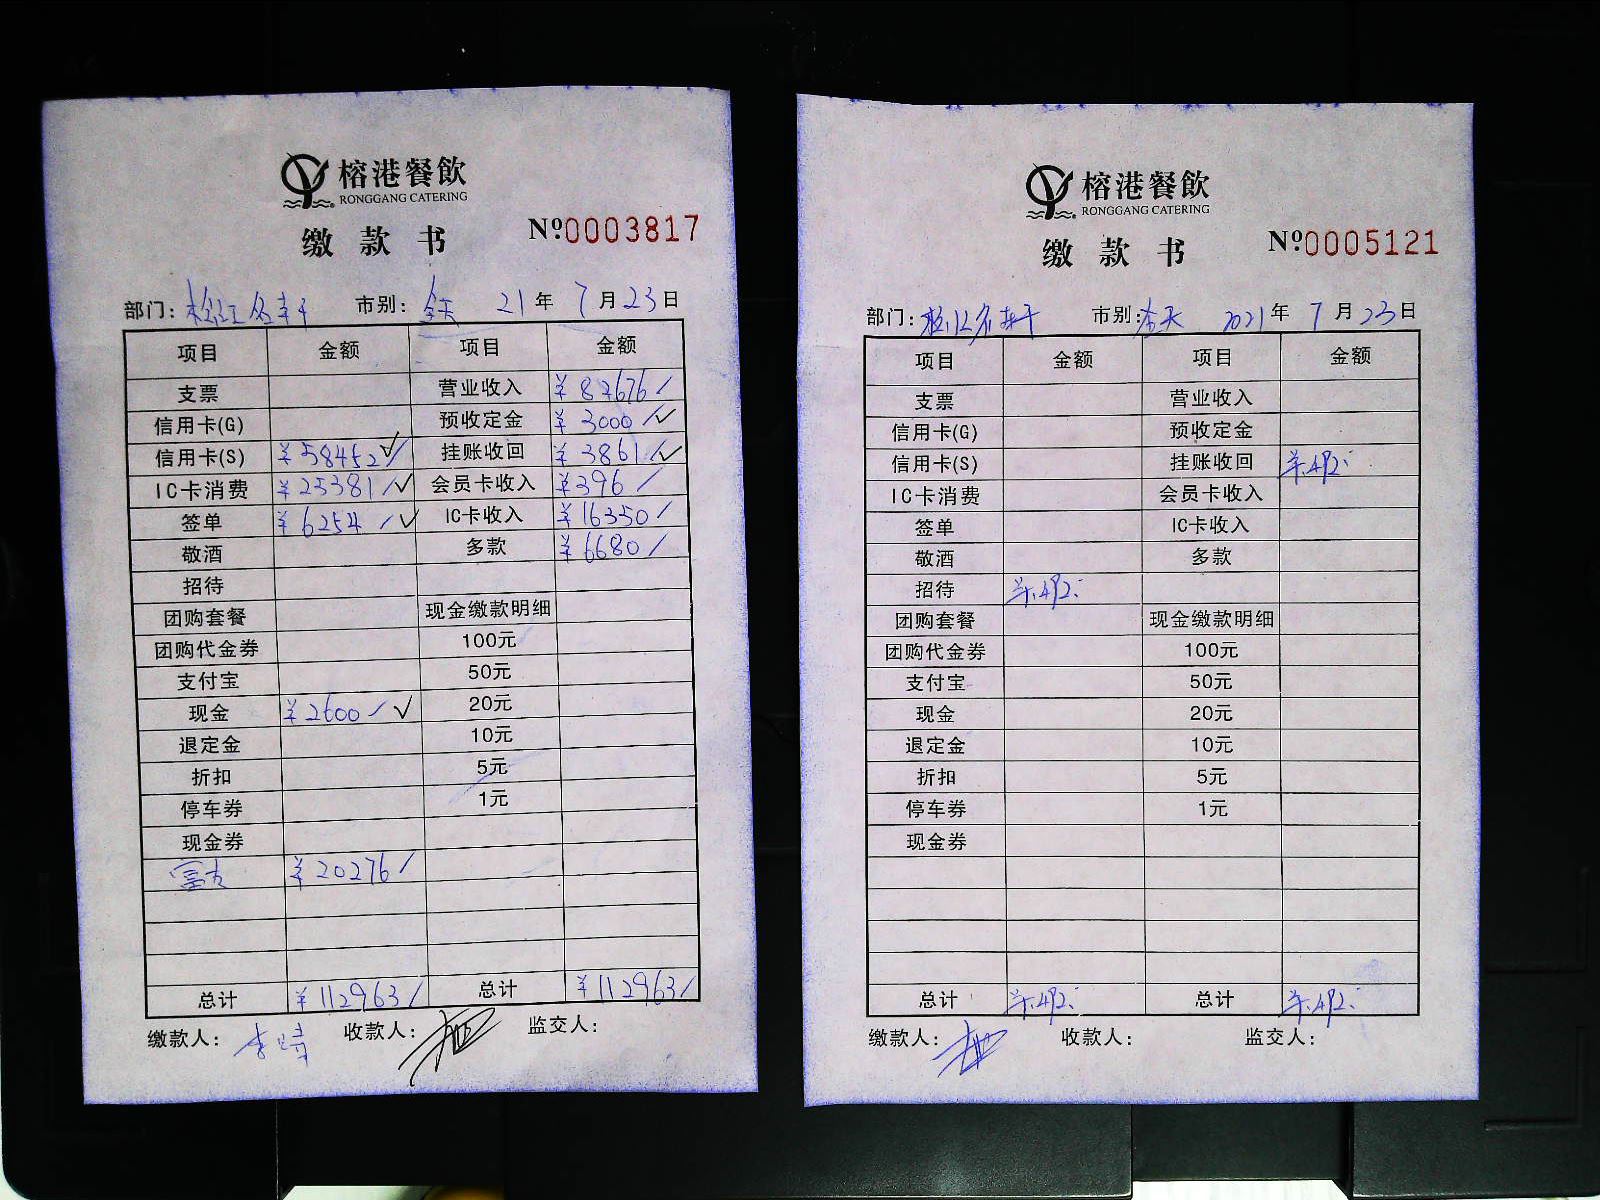 榕港餐飲
RONGGANG CATERING
缴款书 Nº0003817
部门: 松江名轩 市别: 全天 21年7月23日
项目 金额 项目 金额
支票 营业收入 ¥82676/
信用卡(G) 预收定金 ¥3000/✓
信用卡(S) ¥58452/✓ 挂账收回 ¥3861/✓
IC卡消费 ¥25381/✓ 会员卡收入 ¥396/
签单 ¥6254/✓ IC卡收入 ¥16350/
敬酒 多款 ¥6680/
招待
团购套餐 现金缴款明细
团购代金券 100元
支付宝 50元
现金 ¥2600/✓ 20元
退定金 10元
折扣 5元
停车券 1元
现金券
富友 ¥20276/
总计 ¥112963/ 总计 ¥112963/
缴款人: 收款人: 监交人:
榕港餐飲
RONGGANG CATERING
缴款书 Nº0005121
部门: 松江名轩 市别: 全天 2021年7月23日
项目 金额 项目 金额
支票 营业收入
信用卡(G) 预收定金
信用卡(S) 挂账收回 ¥492.
IC卡消费 会员卡收入
签单 IC卡收入
敬酒 多款
招待 ¥492.
团购套餐 现金缴款明细
团购代金券 100元
支付宝 50元
现金 20元
退定金 10元
折扣 5元
停车券 1元
现金券
总计 ¥492. 总计 ¥492.
缴款人: 收款人: 监交人: